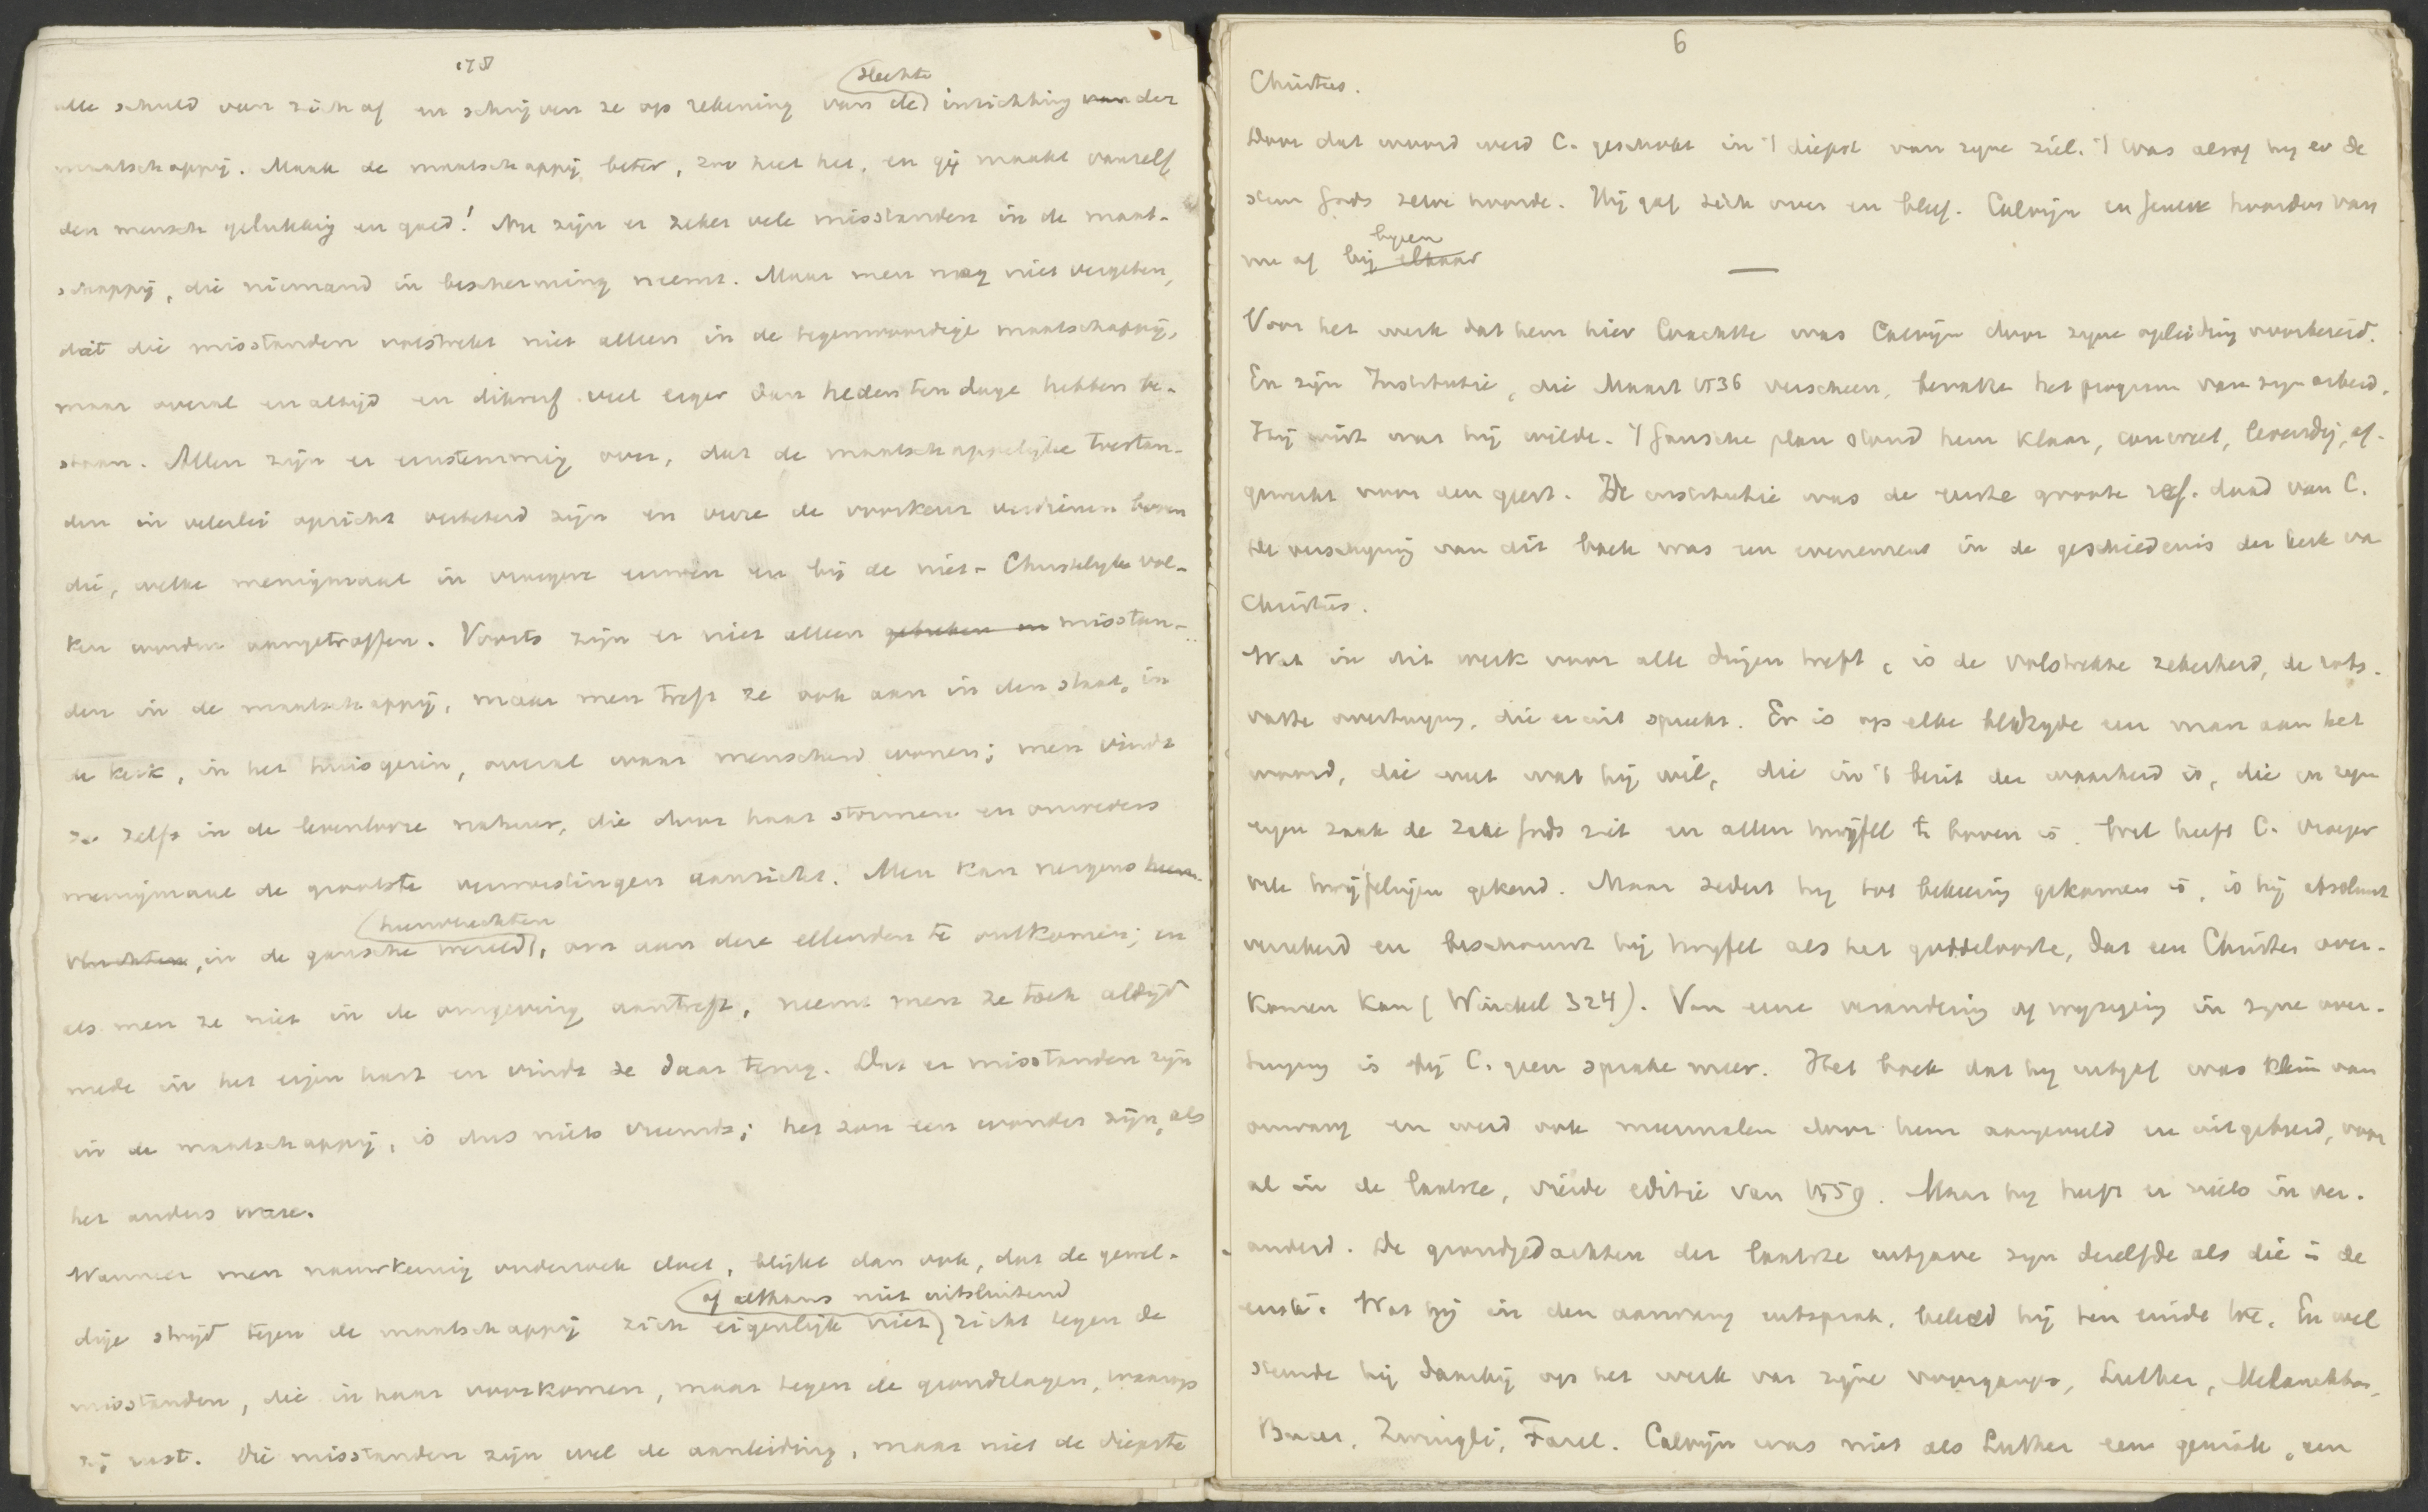 178
slechte
alle schuld van zich af en schrijven ze op rekening van de inrichting van der
maatschappij. Maak de maatschappij beter, zoo heet het, en gij maakt vanzelf
den mensch gelukkig en goed! Nu zijn er zeker vele misstanden in de maat-
schappij, die niemand in bescherming neemt. Maar men mag niet vergeten,
dat die misstanden volstrekt niet alleen in de tegenwoordige maatschappij,
maar overal en altijd en dikwerf veel erger dan hedentendage hebben be-
staan. Allen zijn er eenstemmig over, dat de maatschappelijke toestan-
den in velerlei opzicht verbeterd zijn en verre de voorkeur verdienen boven
die, welke menigmaal in vroegere eeuwen en bij de niet-Christelijke vol-
ken worden aangetroffen. Voorts zijn er niet alleen gebreken en misstan-
den in de maatschappij, maar men treft ze ook aan in den staat, in
de kerk, in het huisgezin, overal waar menschen wonen; men vindt
ze zelfs in de levenlooze natuur, die door haar stormen en onweders
menigmaal de grootste verwoestingen aanricht. Men kan nergens heen
heenvluchten
vluchten, in de gansche wereld, om aan deze ellenden te ontkomen; en
als men ze niet in de omgeving aantreft, neemt men ze toch altijd
mede in het eigen hart en vindt ze daar terug. Dat er misstanden zijn
in de maatschappij, is dus niets vreemds; het zou een wonder zijn, als
het anders ware.
Wanneer men nauwkeurig onderzoek doet, blijkt dan ook, dat de gewel-
of althans niet uitsluitend
dige strijd tegen de maatschappij zich eigenlijk niet richt tegen de
misstanden, die in haar voorkomen, maar tegen de grondslagen, waarop
zij rust. Die misstanden zijn wel de aanleiding, maar niet de diepste
6
Christus.
Door dat woord werd C. geschokt in 't diepst van zijne ziel. 't Was alsof hij er de
stem Gods zelve hoorde. Hij gaf zich over en bleef. Calvijn en Geneve hoorden van
nu af bijeen
bij elkaar
Voor het werk dat hem hier wachtte was Calvijn door zijne opleiding voorbereid.
En zijn Institutie, die Maart 1536 verscheen, bevatte het program van zijn arbeid.
Hij wist wat hij wilde. 't Gansche plan stond hem klaar, concreet, levendig, af-
gewerkt voor den geest. De institutie was de eerste groote ref. daad van C.
De verschijning van dit boek was een evenement in de geschiedenis der kerk van
Christus.
Wat in dit werk voor alle dingen treft, is de volstrekte zekerheid, de rots-
vaste overtuiging, die eruit spreekt. Er is op elke bladzijde een man aan het
woord, die weet wat hij wil, die in 't bezit der waarheid is, die in zijn
eigen zaak de zake Gods ziet en allen twijfel te boven is. Wel heeft C. vroeger
vele twijfelingen gekend. Maar sedert hij tot bekeering gekomen is, is hij absoluut
verzekerd en beschouwt hij twijfel als het goddelooste, dat een Christen over-
komen kan (Winckel 324). Van eene verandering of wijziging in zijne over-
tuiging is bij C. geen sprake meer. Het boek dat hij uitgaf was klein van
omvang en werd ook meermalen door hem aangevuld en uitgebreid, voor-
al in de laatste, vierde editie van 1559. Maar hij heeft er niets in ver-
anderd. De grondgedachten der laatste uitgave zijn dezelfde als die in de
eerste. Wat hij in den aanvang uitsprak, beleed hij ten einde toe. En wel
steunde hij daarbij op het werk van zijne voorgangers, Luther, Melanchton,
Bucer, Zwingli, Farel. Calvijn was niet als Luther een genie, een